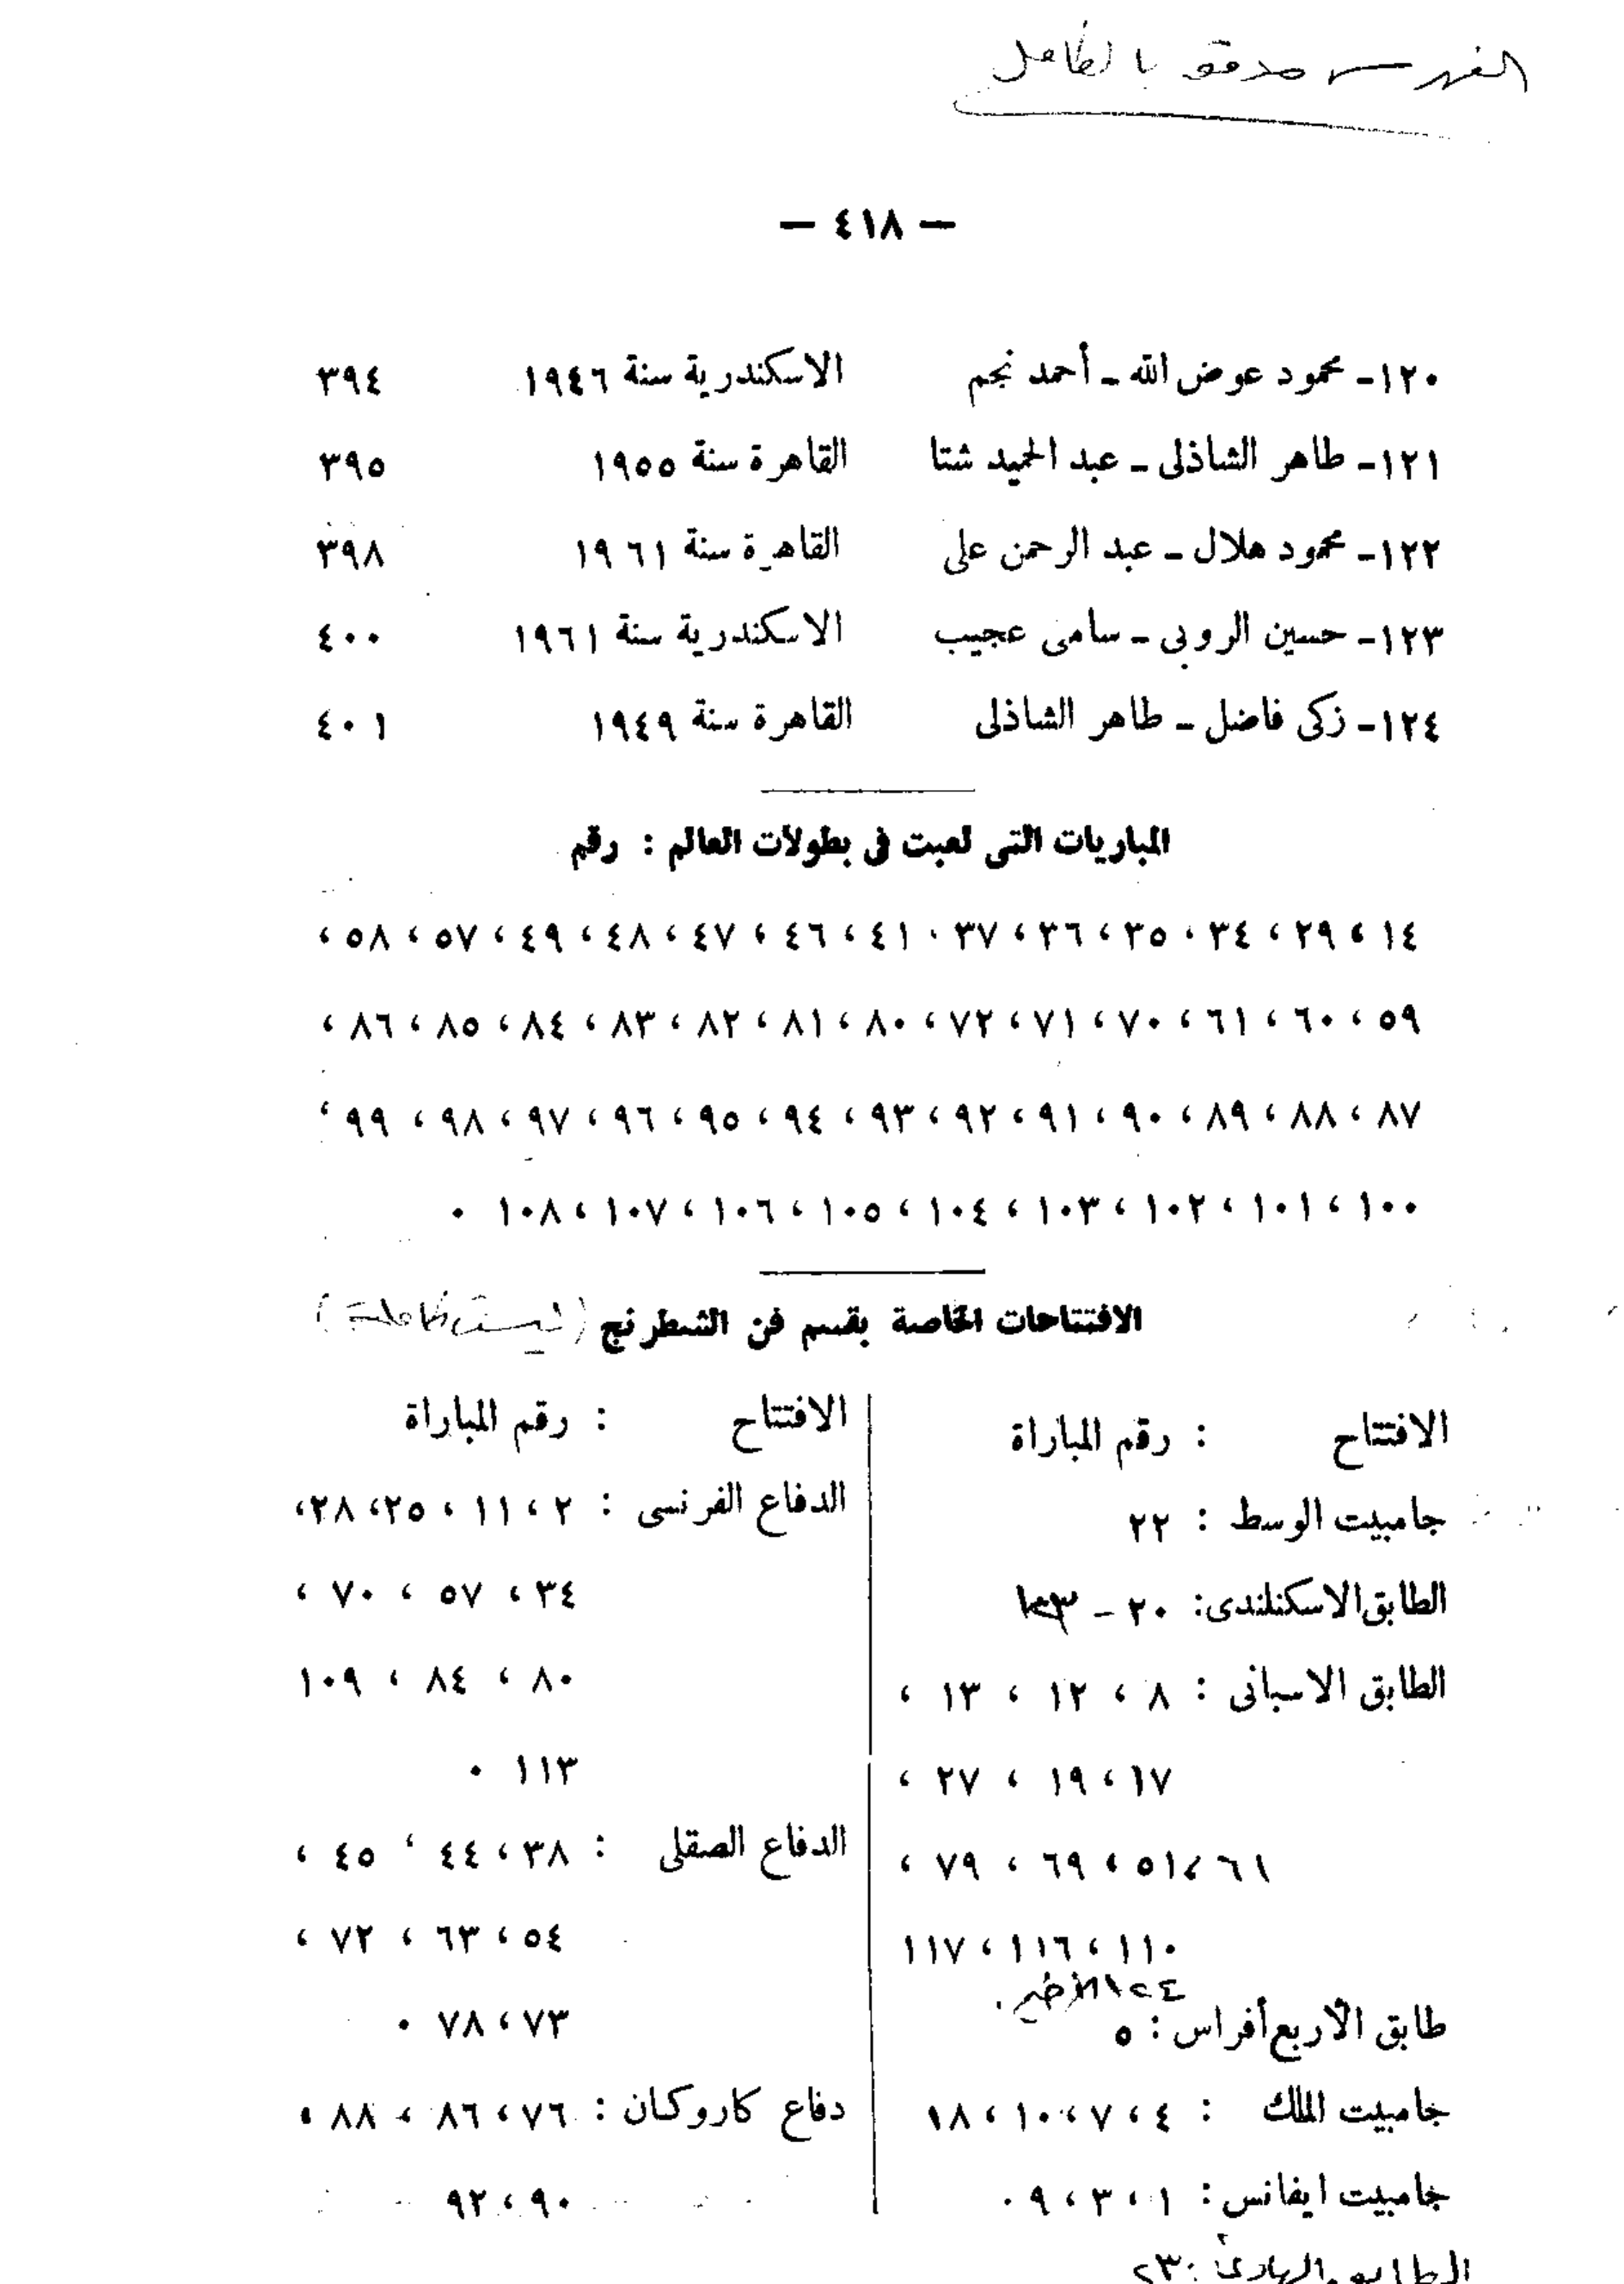 الفهرس مدقق بالكامل
— ٤١٨ —
١٢٠ـ محمود عوض الله ـ أحمد نجم الاسكندرية سنة ١٩٤٦ ٣٩٤
١٢١ـ طاهر الشاذلى ـ عبد الحميد شتا القاهرة سنة ١٩٥٥ ٣٩٥
١٢٢ـ محمود هلال ـ عبد الرحمن على القاهرة سنة ١٩٦١ ٣٩٨
١٢٣ـ حسين الروبى ـ سامى عجيب الاسكندرية سنة ١٩٦١ ٤٠٠
١٢٤ـ زكى فاضل ـ طاهر الشاذلى القاهرة سنة ١٩٤٩ ٤٠١
المباريات التى لعبت فى بطولات العالم : رقم
١٤ ، ٢٩ ، ٣٤ ، ٣٥ ، ٣٦ ، ٣٧ ، ٤١ ، ٤٦ ، ٤٧ ، ٤٨ ، ٤٩ ، ٥٧ ، ٥٨ ،
٥٩ ، ٦٠ ، ٦١ ، ٧٠ ، ٧١ ، ٧٢ ، ٨٠ ، ٨١ ، ٨٢ ، ٨٣ ، ٨٤ ، ٨٥ ، ٨٦ ،
٨٧ ، ٨٨ ، ٨٩ ، ٩٠ ، ٩١ ، ٩٢ ، ٩٣ ، ٩٤ ، ٩٥ ، ٩٦ ، ٩٧ ، ٩٨ ، ٩٩ ،
١٠٠ ، ١٠١ ، ١٠٢ ، ١٠٣ ، ١٠٤ ، ١٠٥ ، ١٠٦ ، ١٠٧ ، ١٠٨ .
الافتتاحات الخاصة بقسم فن الشطرنج (ليست كاملة)
الافتتاح : رقم المباراة
جامبيت الوسط : ٢٢
الطابق الاسكتلندى : ٢٠ ـ
الطابق الاسبانى : ٨ ، ١٢ ، ١٣ ،
١٧ ، ١٩ ، ٢٧ ،
٦١ ، ٥١ ، ٦٩ ، ٧٩ ،
١١٠ ، ١١٦ ، ١١٧
١٢٤ الأخير .
طابق الأربع أفراس : ٥
جامبيت الملك : ٤ ، ٧ ، ١٠ ، ١٨
جامبيت ايفانس : ١ ، ٣ ، ٩ .
الافتتاح : رقم المباراة
الدفاع الفرنسى : ٢ ، ١١ ، ٢٥ ، ٢٨ ،
٣٤ ، ٥٧ ، ٧٠ ،
٨٠ ، ٨٤ ، ١٠٩
١١٣ .
الدفاع الصقلى : ٣٨ ، ٤٤ ، ٤٥ ،
٥٤ ، ٦٣ ، ٧٢ ،
٧٣ ، ٧٨ .
دفاع كاروكان : ٧٦ ، ٨٦ ، ٨٨ ،
٩٠ ، ٩٢